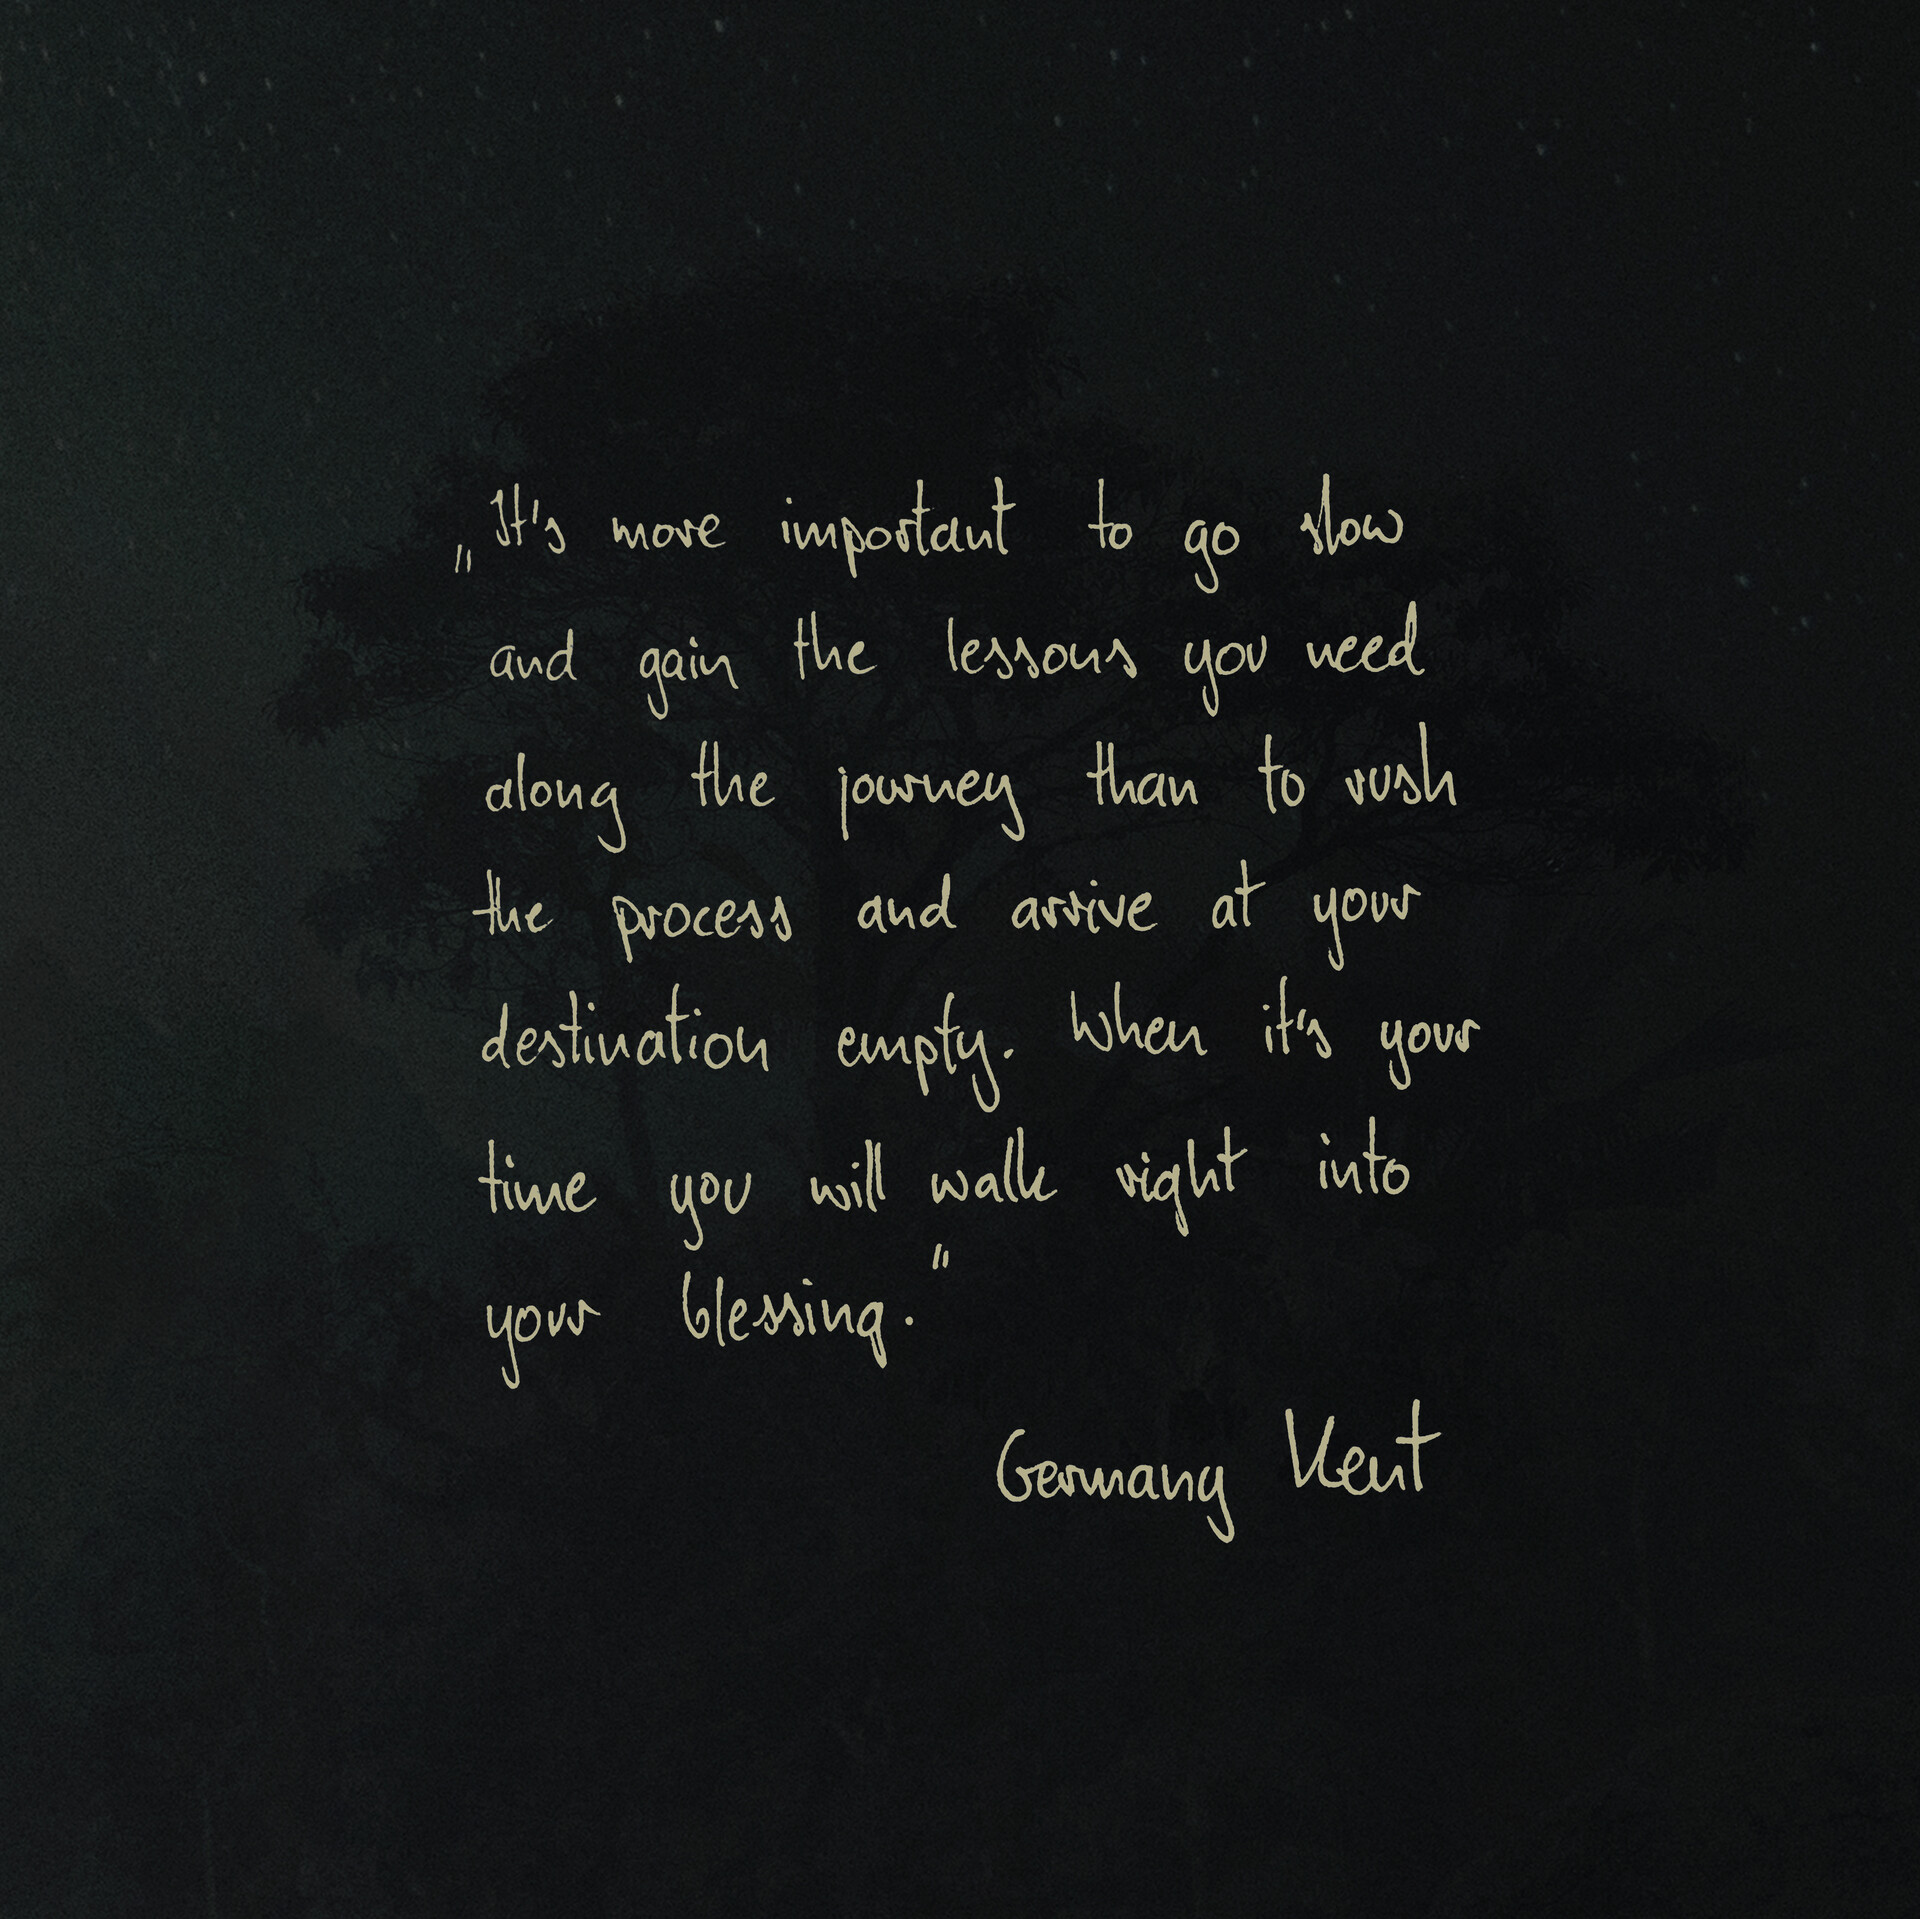 „It's more important to go slow
and gain the lessons you need
along the journey than to rush
the process and arrive at your
destination empty. When it's your
time you will walk right into
your blessing."
Germany Kent